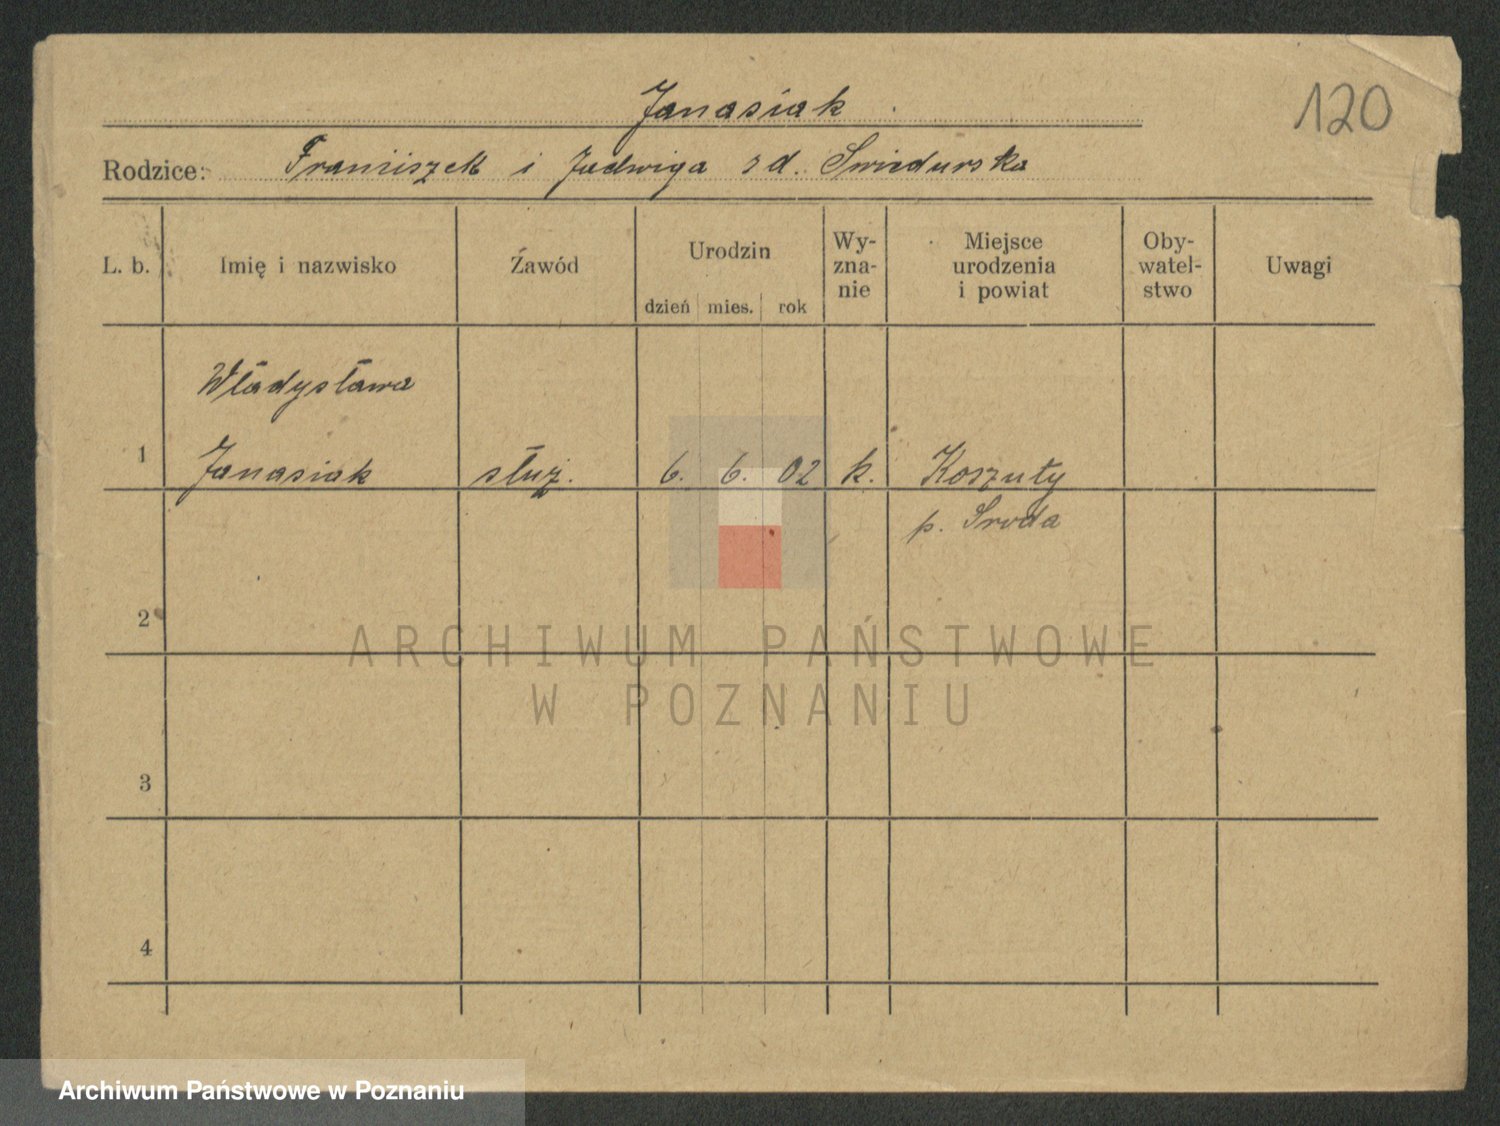 Janasiak
120
Rodzice: Franciszek i Jadwiga zd. Swiedurska
L. b.
Imię i nazwisko
Zawód
Urodzin
dzień mies. rok
Wy-
zna-
nie
Miejsce
urodzenia
i powiat
Oby-
watel-
stwo
Uwagi
Władysława
1 Janasiak służ. 6. 6. 02 k. Koszuty
p. Sroda
2
3
4
ARCHIWUM PAŃSTWOWE
W POZNANIU
Archiwum Państwowe w Poznaniu